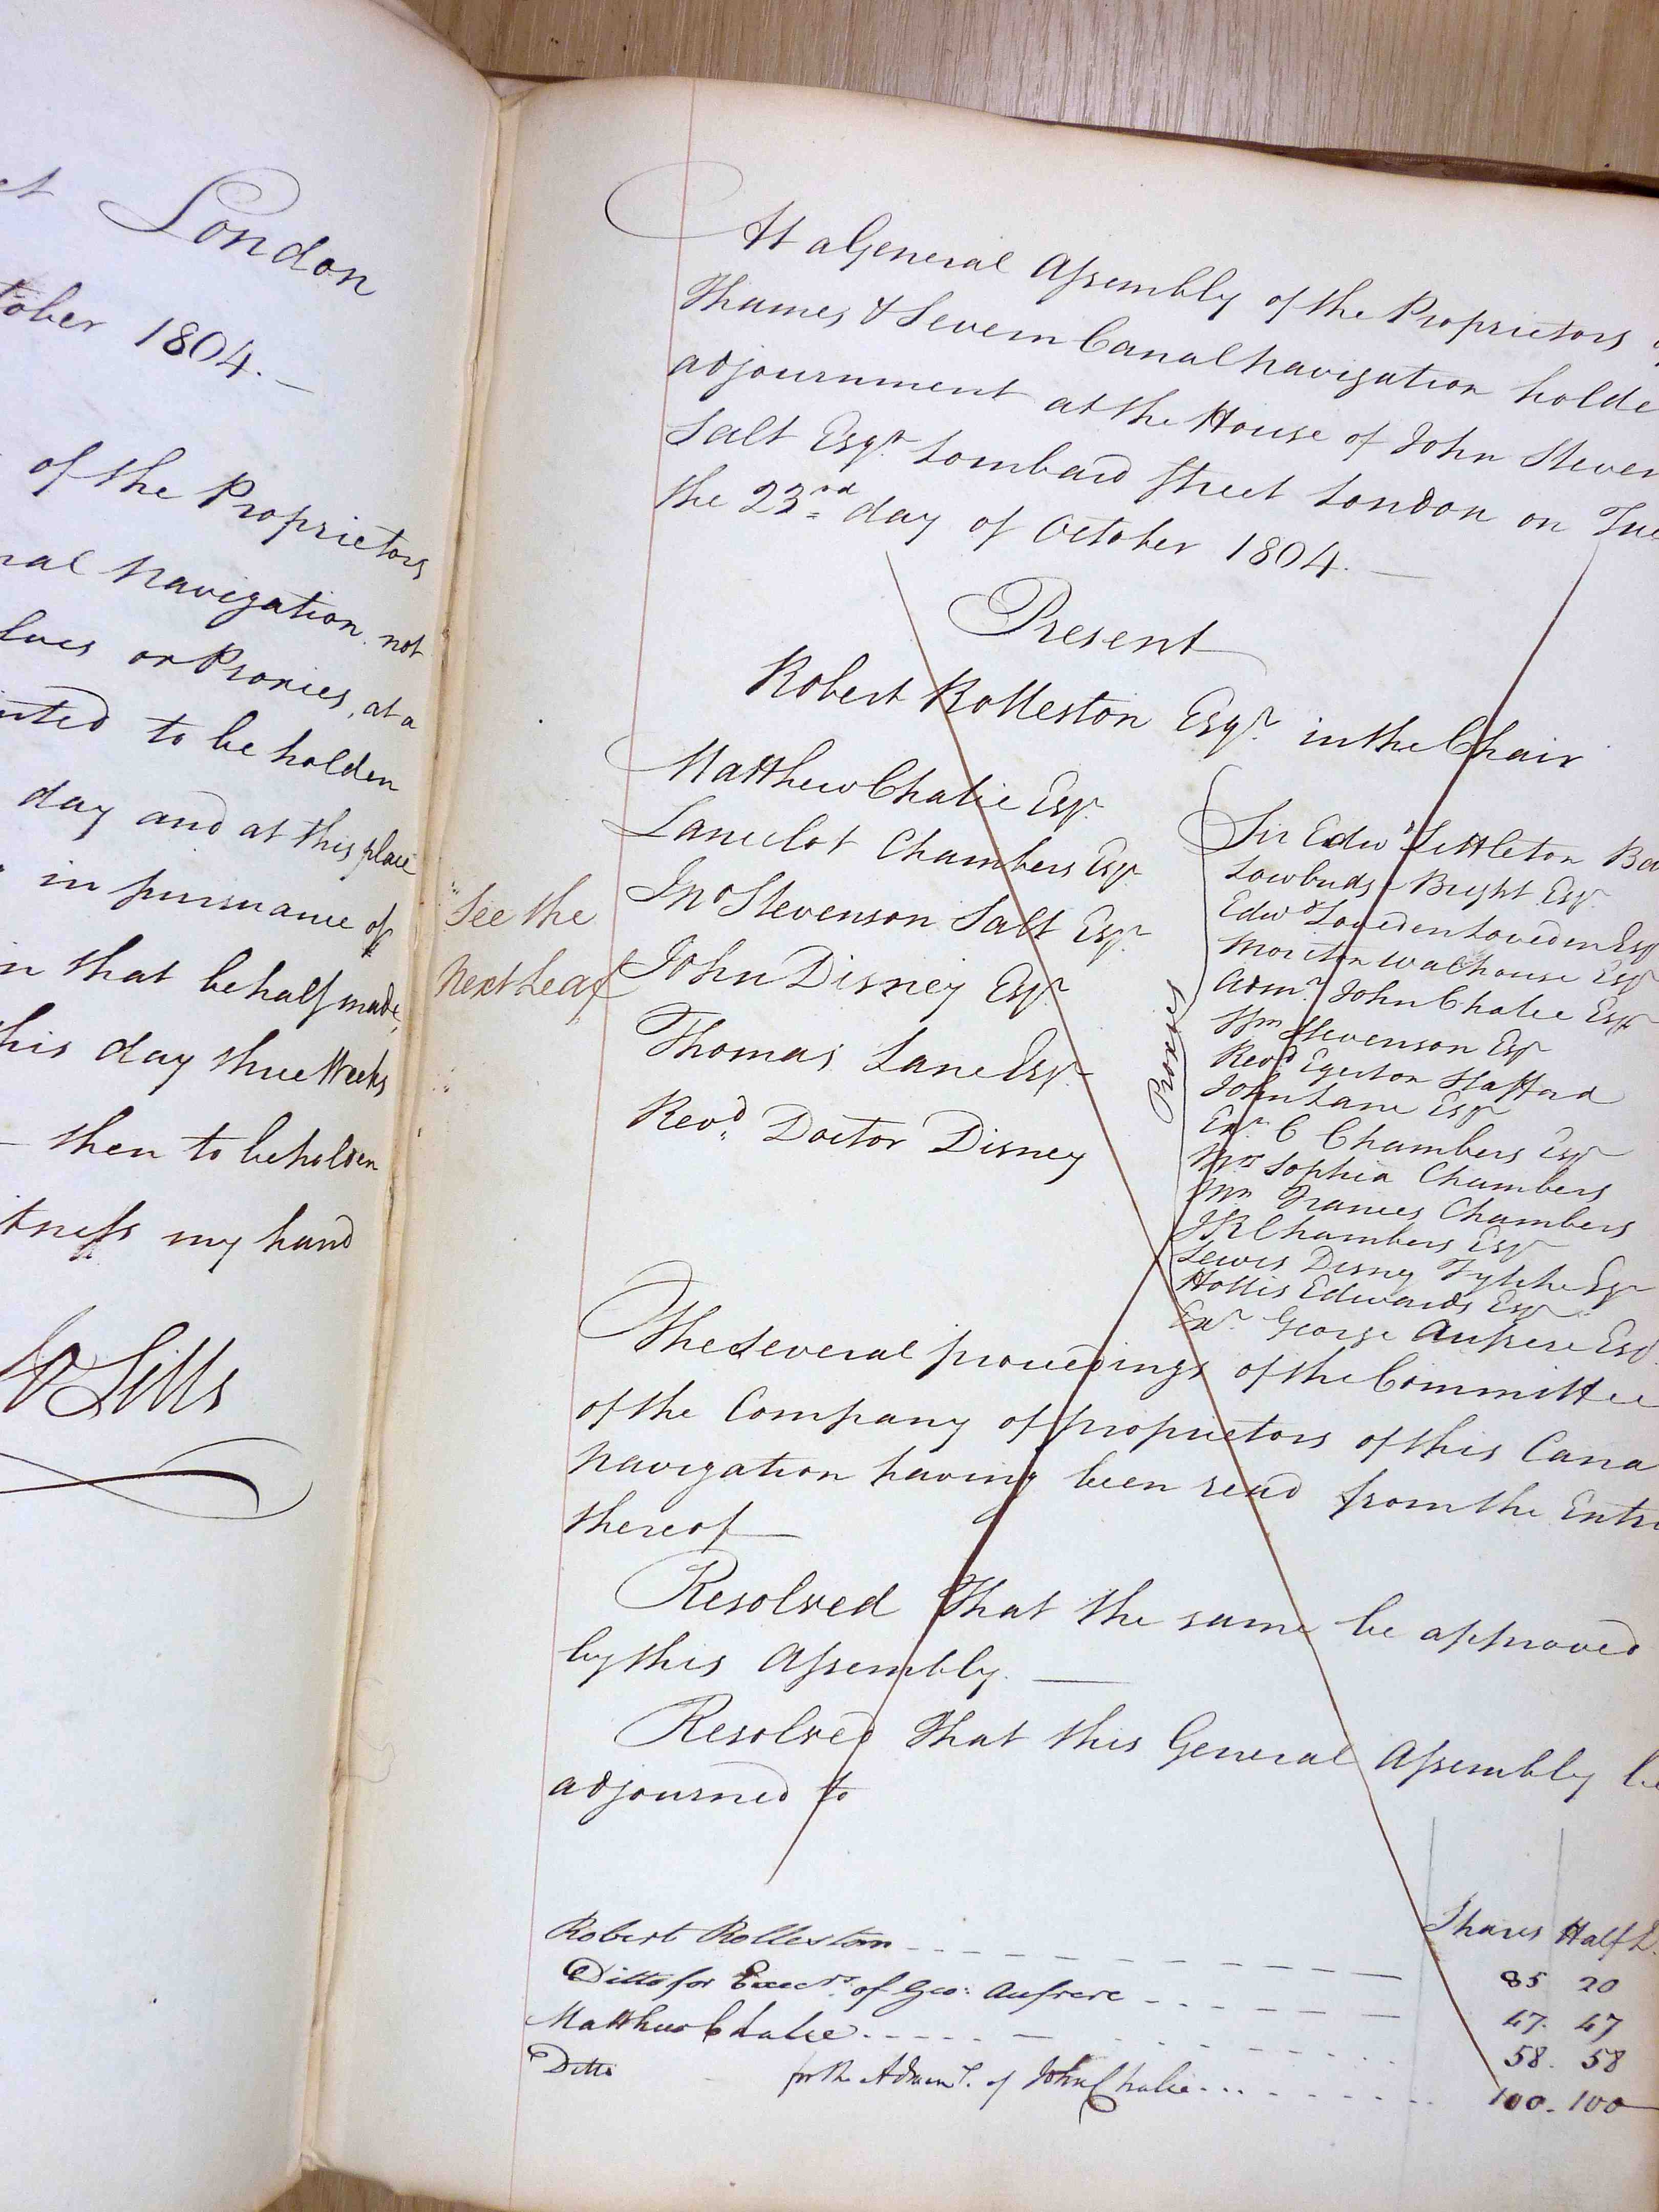 London
tober 1804. —
of the Proprietors
nal Navigation not
lves or Proxies, at a
inted to be holden
day and at this place
in pursuance of
in that behalf made,
this day three Weeks
— then to be holden
itness my hand
Sills
At a General Assembly of the Proprietors
Thames & Severn Canal Navigation holde
adjournment at the House of John Steven
Salt Esqr. Lombard Street London on Tue
the 23rd day of October 1804. —
Present
Robert Rolleston Esqr. in the Chair
Matthew Chalie Esqr.
Lancelot Chambers Esqr.
Jno Stevenson Salt Esqr.
"See the
Next Leaf
John Disney Esqr.
Thomas Lane Esqr.
Revd. Doctor Disney
Proxies
Sir Edwd Littleton Ba
Lowbridge Bright Esqr
Edwd Loveden Loveden Esqr
Moreton Walhouse Esqr
Admr. John Chalie Esqr
Wm Stevenson Esqr
Revd Egerton Stafford
John Lane Esqr
Exr. C Chambers Esqr
Mrs Sophia Chambers
Frances Chambers
Chambers Esqr
Lewis Disney Fytche Esqr
Hollis Edwards Esqr
Exr. George Aufrere Esq
The several proceedings of the Committee
of the Company of proprietors of this Cana
Navigation having been read from the Entri
thereof —
Resolved That the same be approved
by this Assembly. —
Resolved That this General Assembly be
adjourned to
Shares Half
Robert Rolleston 85 20
Ditto for Execrs. of Geo: Aufrere 47. 47
Matthew Chalie 58. 58
Ditto for the Admr. of John Chalie 100. 100